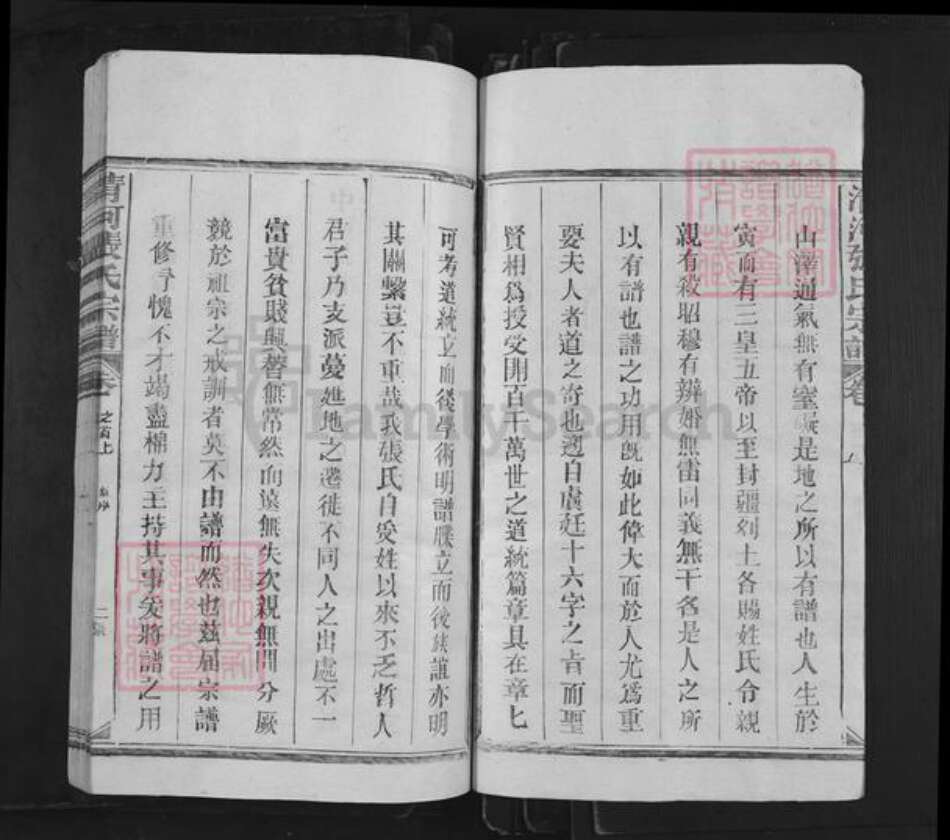 清河張氏宗譜
山澤通氣無有窒礙是地之所以有譜也人生於
寅而有三皇五帝以至封疆列土各賜姓氏令親
親有殺昭穆有辨婚無雷同義無干名是人之所
以有譜也譜之功用既如此偉大而於人尤爲重
要夫人者道之寄也逈自虞廷十六字之旨而聖
賢相爲授受開百千萬世之道統篇章具在章七
可考道統立而後學術明譜牒立而後族誼亦明
其關繫豈不重哉我張氏自受姓以來不乏哲人
君子乃支派蔓延地之遷徙不同人之出處不一
富貴貧賤興替無常然而遠無失次親無間分厥
競於祖宗之戒訓者莫不由譜而然也茲屆宗譜
重修予愧不才竭盡棉力主持其事爰將譜之用
清河張氏宗譜
卷
之首上
二
FamilySearch